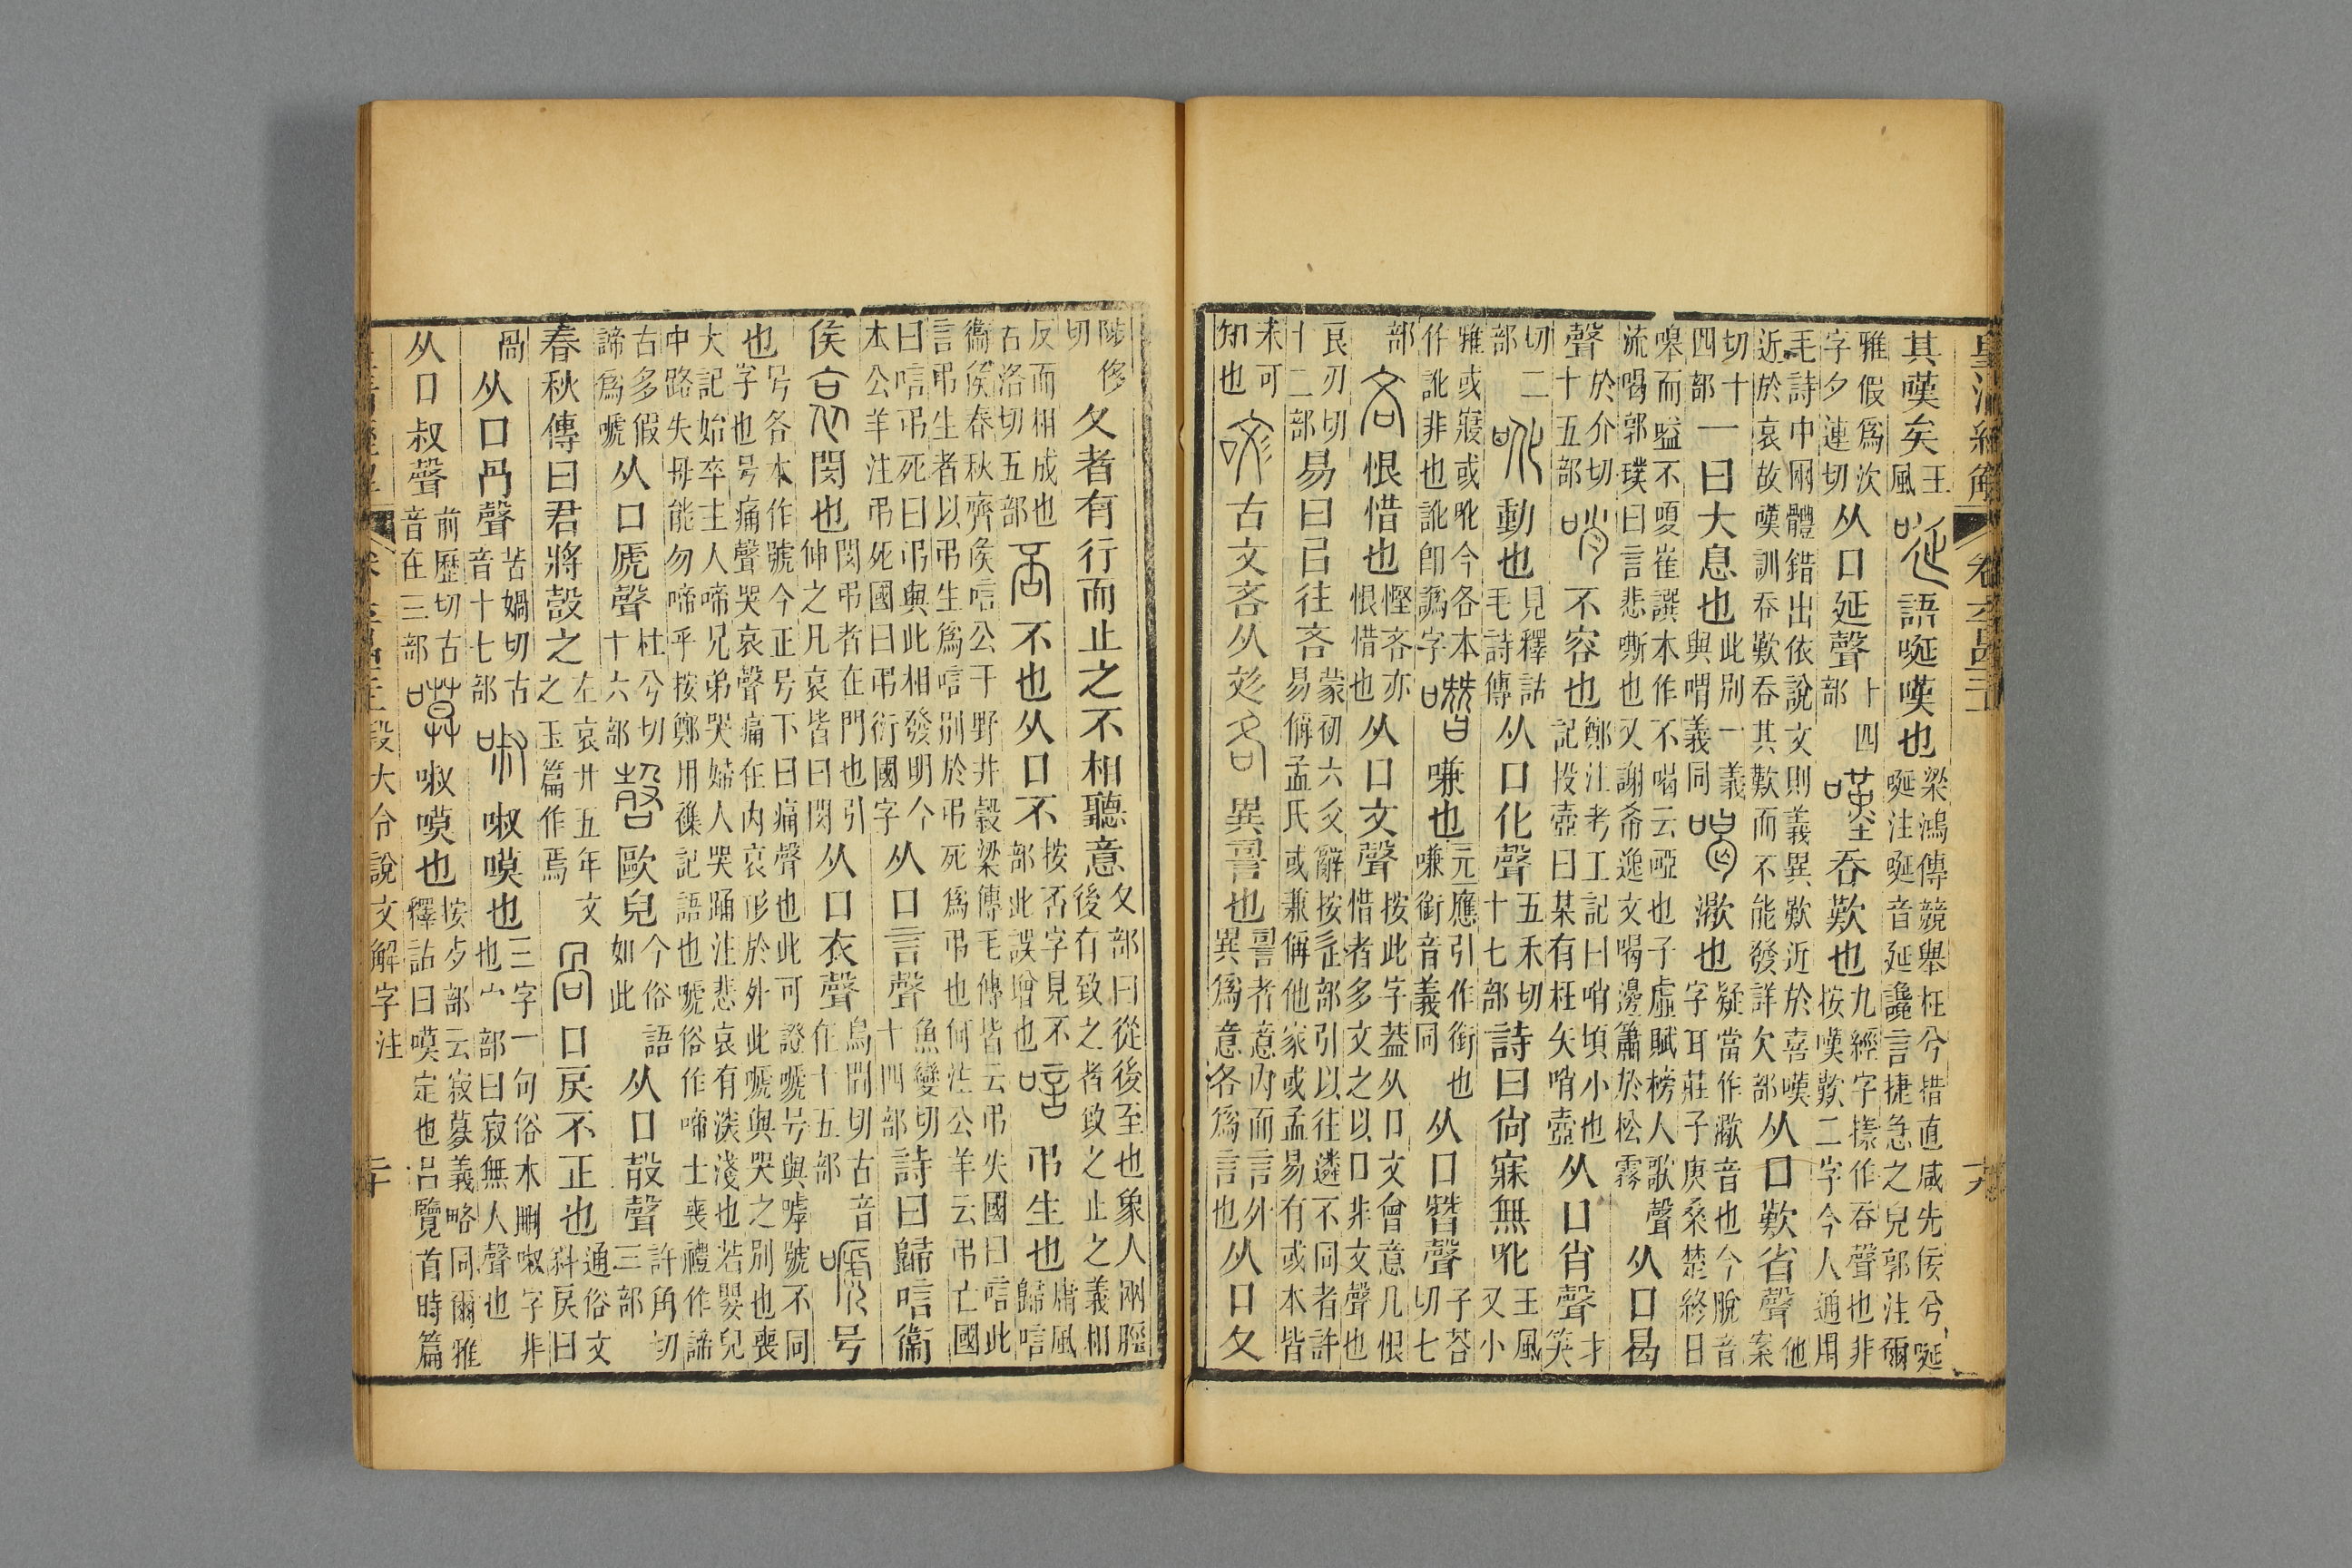 皇清經解　卷六百四十二　十九
其嘆矣王風唌語唌嘆也梁鴻傳競舉枉兮措直咸先佞兮唌唌注唌唌音延讒言捷急之皃郭注爾
雅假爲次字夕連切从口延聲十四部嘆吞歎也九經字㨾作吞聲也非按嘆歎二字今人通用
毛詩中兩體錯出依說文則義異歎近於喜嘆近於哀故嘆訓吞歎吞其歎而不能發詳欠部从口歎省聲他案
切十四部一曰大息也此別一義與喟義同喝㵣也疑當作㵣音也今脫音字耳莊子庚桑楚終日
嗥而嗌不嗄崔譔本作不喝云啞也子虛賦榜人歌聲流喝郭璞曰言悲嘶也又謝希逸文喝邊簫於松霧从口曷
聲於介切十五部哨不容也鄭注考工記曰哨頃小也記投壺曰某有枉矢哨壺从口肖聲才笑
切二部吪動也見釋詁毛詩傳从口化聲五禾切十七部詩曰尙寐無吪王風又小
雅或寢或吪今各本作訛非也訛卽譌字噆嗛也元應引作銜也嗛銜音義同从口朁聲子荅切七
部吝恨惜也慳吝亦恨惜也从口文聲按此字蓋从口文會意凡恨惜者多文之以口非文聲也
良刃切十二部易曰㠯往吝蒙初六爻辭按辵部引以往遴不同者許易偁孟氏或兼偁他家或孟易有或本皆
未可知也古文吝从彣各異䛐也䛐者意內而言外異爲意各爲言也从口夂
陟侈切夂者有行而止之不相聽意夂部曰從後至也象人兩脛後有致之者致之止之義相
反而相成也古洛切五部否不也从口不按否字見不部此誤增也唁弔生也庸風歸唁
衞侯春秋齊侯唁公于野井穀梁傳毛傳皆云弔失國曰唁此言弔生者以弔生爲唁別於弔死爲弔也何注公羊云弔亡國
曰唁弔死曰弔與此相發明今本公羊注弔死國曰弔衍國字从口言聲魚變切十四部詩曰歸唁衞
侯哀閔也閔弔者在門也引伸之凡哀皆曰閔从口衣聲烏開切古音在十五部嗁号
也号各本作號今正号下曰痛聲也此可證嗁号與嘑號不同字也号痛聲哭哀聲痛在內哀形於外此嗁與哭之別也喪
大記始卒主人啼兄弟哭婦人哭踊注悲哀有淡淺也若嬰兒中路失母能勿啼乎按鄭用襍記語也嗁俗作啼士喪禮作諦
古多假諦爲嗁从口虒聲杜兮切十六部㱿歐皃今俗語如此从口㱿聲許角切三部
春秋傳曰君將㱿之左哀廿五年文之玉篇作焉咼口戾不正也通俗文斜戾曰
咼从口冎聲苦媧切古音十七部㖡㖡嗼也三字一句俗本刪㖡字非也宀部曰寂無人聲也
从口叔聲前歷切古音在三部嗼㖡嗼也按歺部云寂募義略同爾雅釋詁曰嗼定也呂覽首時篇
皇清經解　卷六百四十二　段大令說文解字注　二十